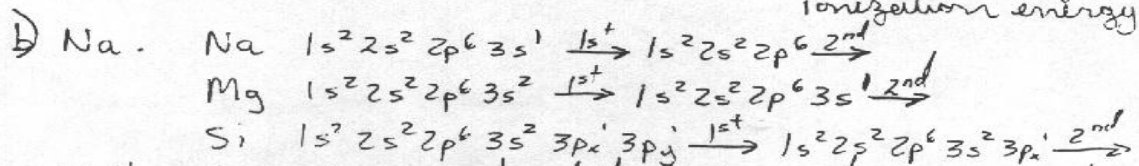 Ionization energy
b) Na. Na 1s² 2s² 2p⁶ 3s¹ 1st→ 1s² 2s² 2p⁶ 2nd→
Mg 1s² 2s² 2p⁶ 3s² 1st→ 1s² 2s² 2p⁶ 3s¹ 2nd→
Si 1s² 2s² 2p⁶ 3s² 3pₓ¹ 3py¹ 1st→ 1s² 2s² 2p⁶ 3s² 3pₓ¹ 2nd→